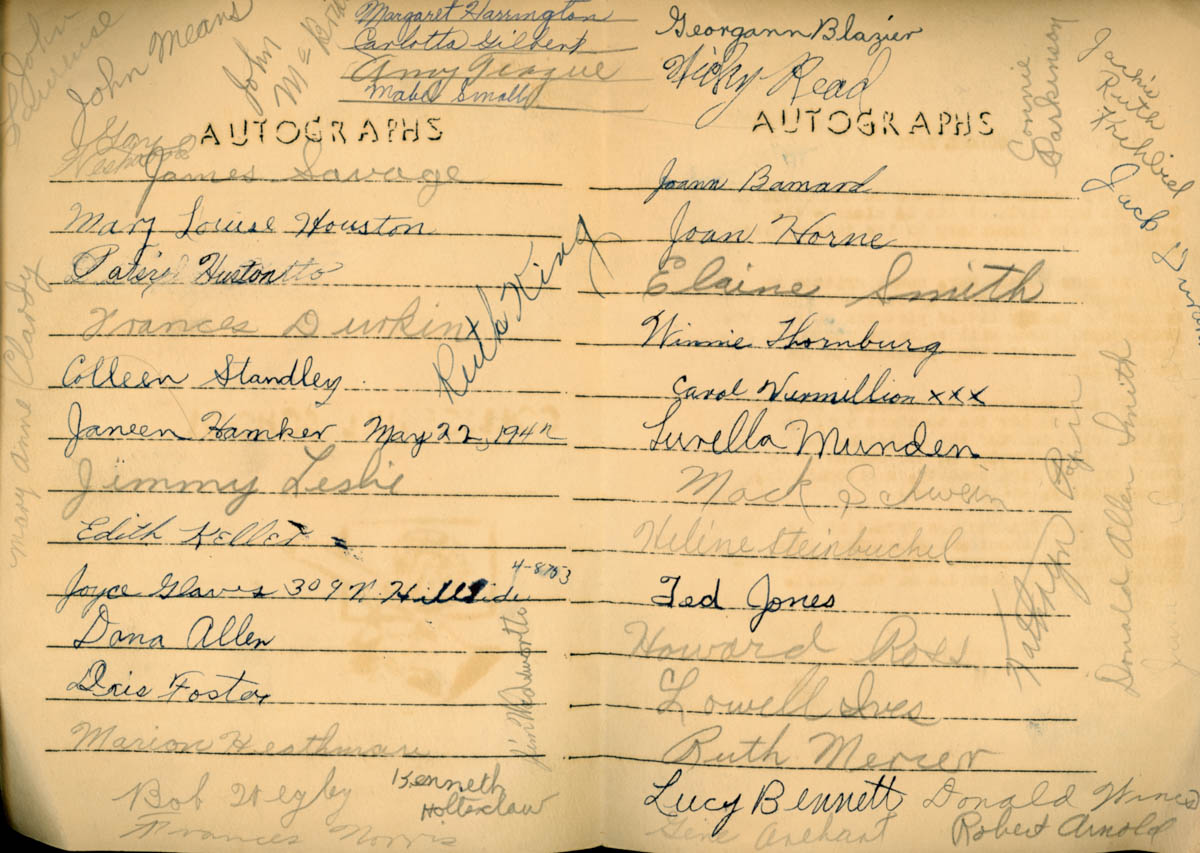 John
John Means
John
Margaret Harrington
Carlotta Gilbert
Amy Teague
Mabel Small
AUTOGRAPHS
Gary
James Savage
Mary Louise Houston
Patsy Huston
Frances Durkin
Ruth King
Colleen Standley
Janeen Hamker May 22, 194
Jimmy Leslie
Edith Keller
4-8753
Joyce Glaves 309 N. Hillside
Dana Allen
Doris Foster
Marion Heathman
Bob Wegby
Kenneth
Holtzclaw
Frances Norris
Mary Anne Clardy
Jim Wadsworth
Georgann Blazier
Vicky Read
AUTOGRAPHS
Connie
Parkinson
Jackie
Ruth
Jack
Joann Barnard
Joan Horne
Elaine Smith
Winnie Thornburg
Carol Vermillion xxx
Luvella Munden
Mack Schwein
Helene Steinbuchel
Ted Jones
Howard Ross
Lowell Ives
Ruth Mercer
Lucy Bennett
Donald Wines
Gene Arehart
Robert Arnold
Kathryn Papin
Donald Allen Smith